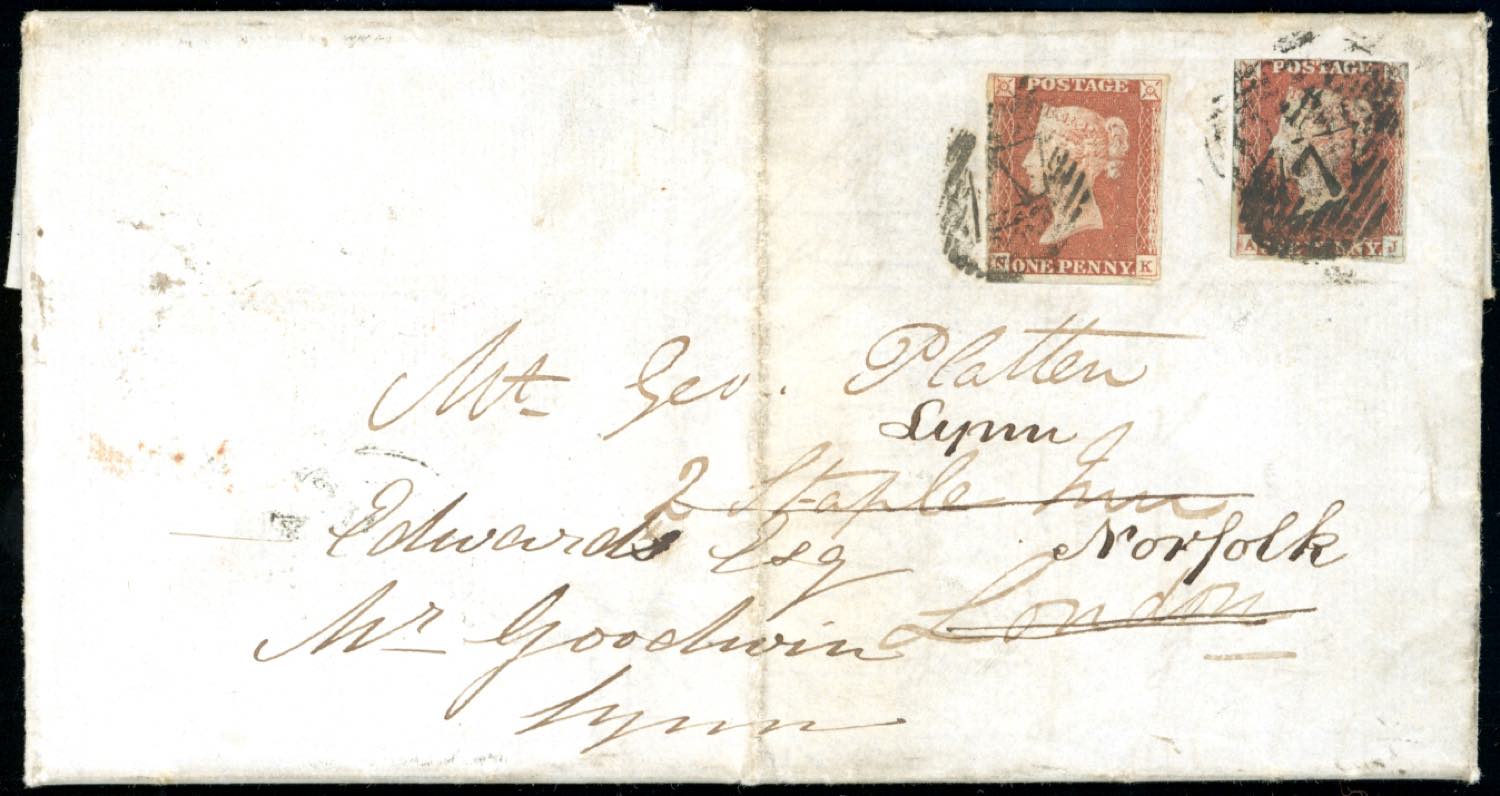 POSTAGE
N ONE PENNY K
POSTAGE
A ONE PENNY J
7
Mr Geo. Platten
Lynn
2 Staple Inn
Edwards Esq Norfolk
London
Mr Goodwin
Lynn